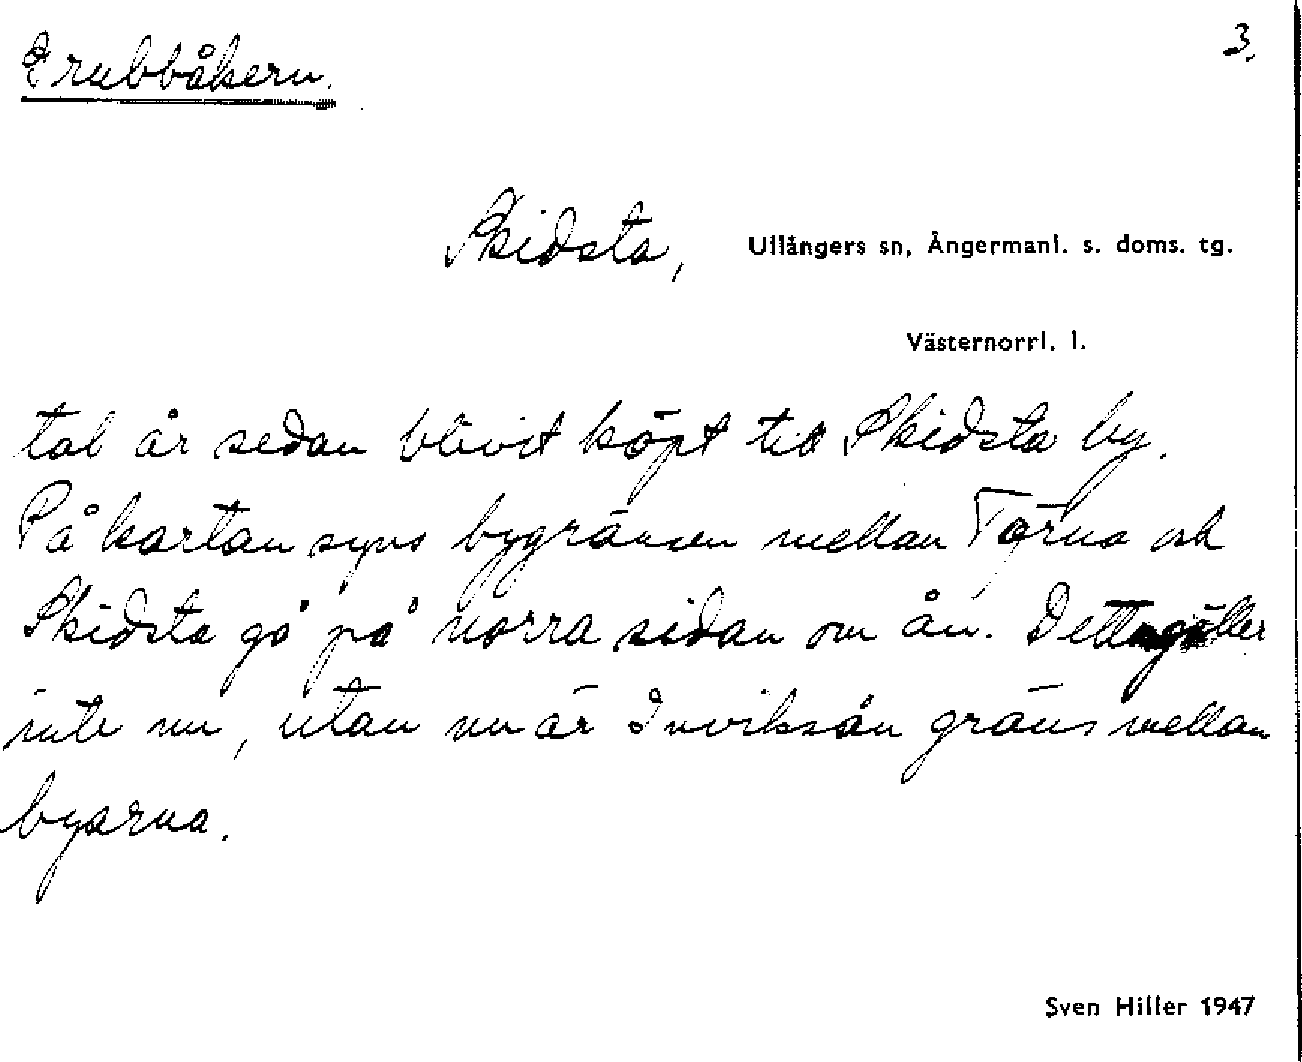 Grubbåkern. 3.
Skidsta, Ullångers sn, Ångermanl. s. doms. tg.
Västernorrl. l.
tal år sedan blivit köpt till Skidsta by.
På kartan syns bygränsen mellan Törna och
Skidsta gå på norra sidan om ån. Detta gäller
inte nu, utan nu är Inviksån gräns mellan
byarna.
Sven Hiller 1947